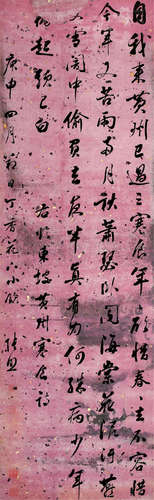 自我來黃州已過三寒食年々欲惜春々去不容惜
今年又苦雨兩月秋蕭瑟臥聞海棠花泥污燕
支雪闇中偷負去夜半真有力何殊病少年
病起頭已白 右臨東坡黃州寒食詩
庚申四月 日丁香花下小酌